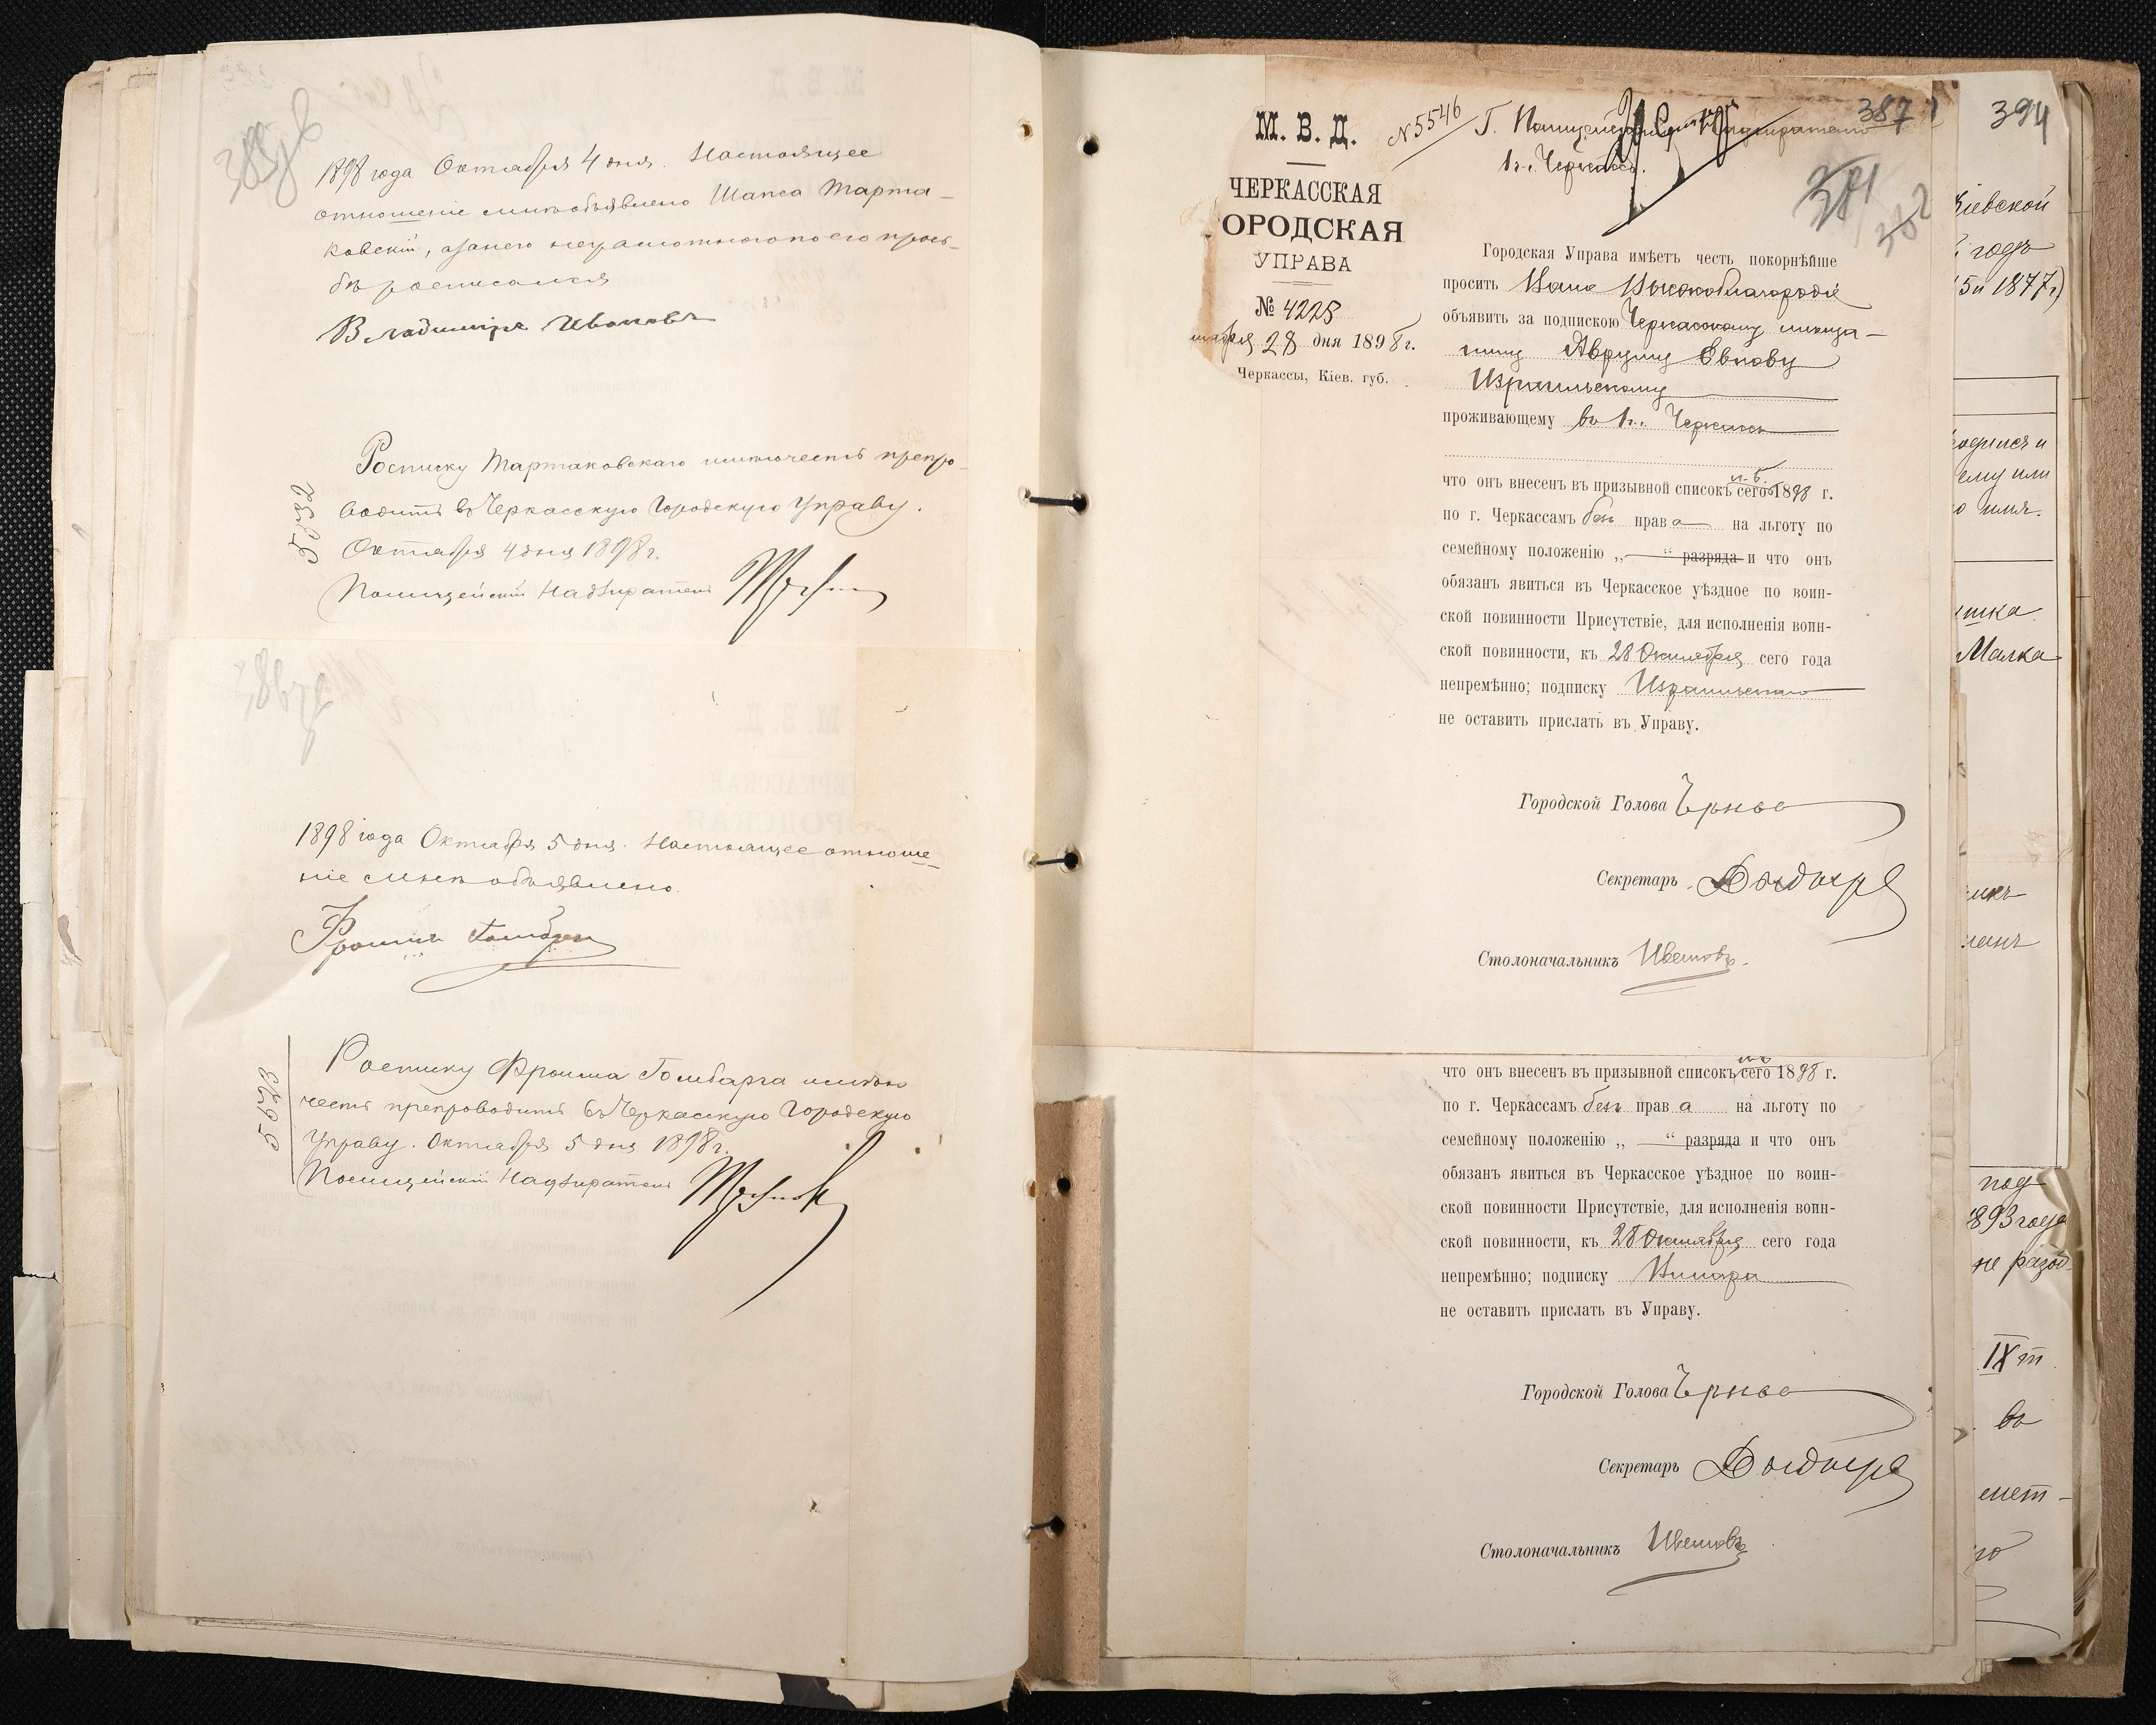 1898 года Октября 4 дня. Настоящее
отношеніе мнѣ объявлено Шапса Тарта-
ковскій, а за него неграмотного по его прось-
бѣ росписался
Владиміръ Ивановъ
5632
Росписку Тартаковскаго имѣю честь препро-
водить въ Черкасскую Городскую Управу.
Октября 4 дня 1898 г.
Полицейскій Надзиратель
1898 года Октября 5 дня. Настоящее отноше-
ніе мнѣ объявлено.
5623
Росписку Фроима Гомбарга имѣю
честь препроводить въ Черкасскую Городскую
Управу. Октября 5 дня 1898 г.
Полицейскій Надзиратель
М. В. Д.
ЧЕРКАССКАЯ
ОРОДСКАЯ
УПРАВА
№ 4228
28 дня 1898 г.
Черкассы, Кіев. губ.
№ 5546
387
Г. Полицейскому Надзирателю
въ г. Черкассы.
381
382
Городская Управа имѣетъ честь покорнѣйше
просить Ваше Высокоблагородіе
объявить за подпискою Черкасскому мѣща-
нину Авруму Евнову
Израильскому
проживающему въ г. Черкассы
что онъ внесенъ въ призывной списокъ сего 1898 г.
по г. Черкассамъ безъ права на льготу по
семейному положенію „ — “ разряда и что онъ
обязанъ явиться въ Черкасское уѣздное по воин-
ской повинности Присутствіе, для исполненія воин-
ской повинности, къ 28 Октября сего года
непремѣнно; подписку Израильскаго
не оставить прислать въ Управу.
Городской Голова
Секретарь
Столоначальникъ
что онъ внесенъ въ призывной списокъ сего 1898 г.
по г. Черкассамъ безъ права на льготу по
семейному положенію „ — “ разряда и что онъ
обязанъ явиться въ Черкасское уѣздное по воин-
ской повинности Присутствіе, для исполненія воин-
ской повинности, къ 28 Октября сего года
непремѣнно; подписку
не оставить прислать въ Управу.
Городской Голова
Секретарь
Столоначальникъ
394
Кіевской
годъ
1877 г)
ему или
имя.
Малка
под
1893 года
не разоб
IX т
во